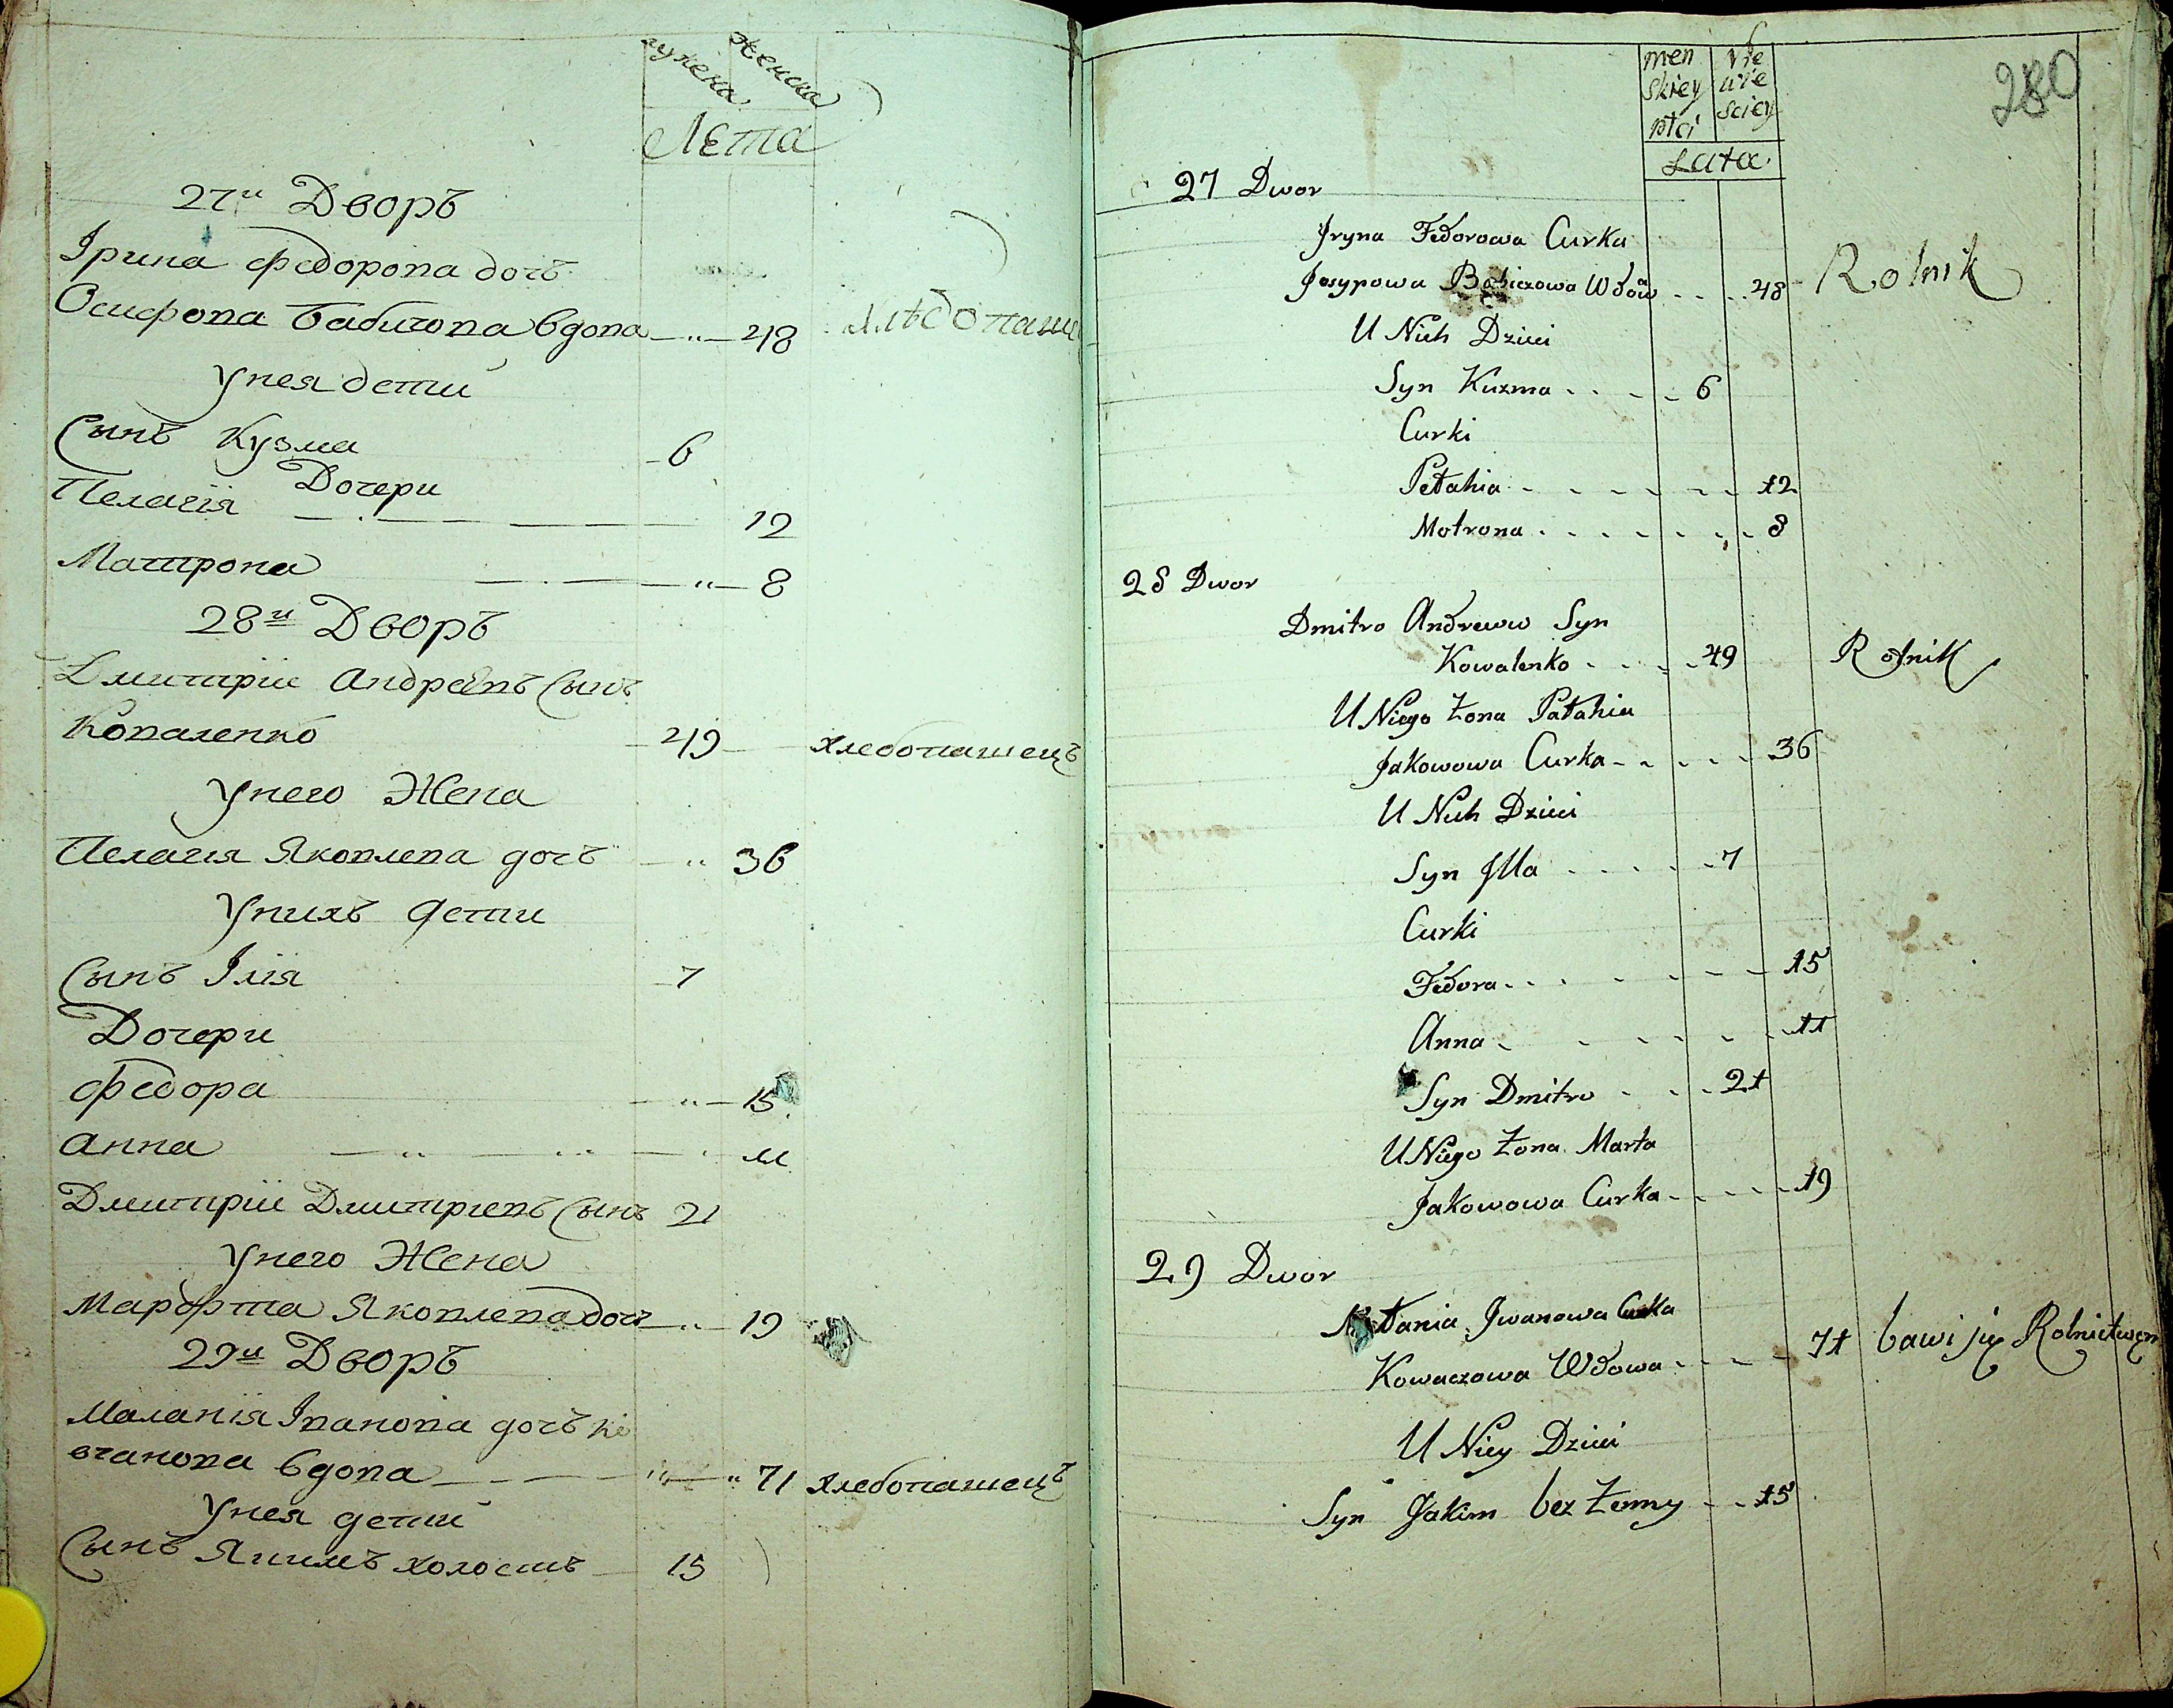 мужеска женска
Лета
27й Дворъ
Ірина Федорова дочъ
Осифова Бабичова вдова 48 хлѣбопаше
Унея дети
Сынъ Кузма 6
Дочери
Пелагія 12
Матрона 8
28й Дворъ
Дмитрій Андреевъ Сынъ
Коваленко 49 хлебопашецъ
Унего Жена
Пелагия Яковлева дочъ 36
Унихъ дети
Сынъ Ілія 7
Дочери
Федора 15
Анна 11
Дмитрій Дмитриевъ Сынъ 21
Унего Жена
Марфта Яковлева дочъ 19
29й Дворъ
Маланія Іванова дочъ Ко
вчанова вдова 71 хлебопашецъ
Унея дети
Сынъ Якимъ холостъ 15
280
men Nie
skiey wie
płci sciey
Lata
27 Dwor
Jryna Fedorowa Curka
Josypowa Babiczowa Wdowa 48 Rolnik
U Nich Dzieci
Syn Kuzma 6
Curki
Pełahia 12
Motrona 8
28 Dwor
Dmitro Andreiew Syn
Kowalenko 49 Rolnik
U Niego Żona Pałahia
Jakowowa Curka 36
U Nich Dzieci
Syn Jlla 7
Curki
Fedora 15
Anna 11
Syn Dmitro 21
U Niego Żona Marta
Jakowowa Curka 19
29 Dwor
Jwanowa Curka
Kowaczowa Wdowa 71 bawi się Rolnictwem
U Niey Dzieci
Syn Jakim bez Żenny 15